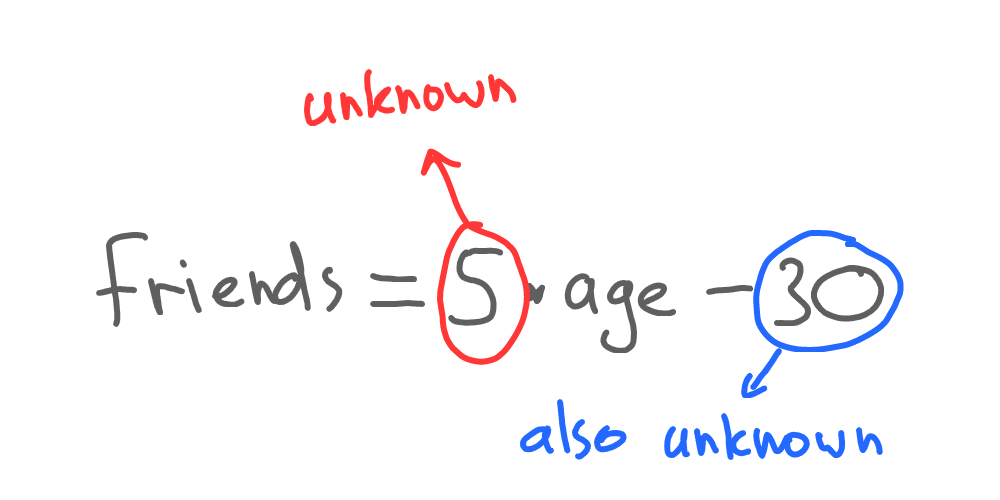 unknown
friends = 5 · age - 30
also unknown